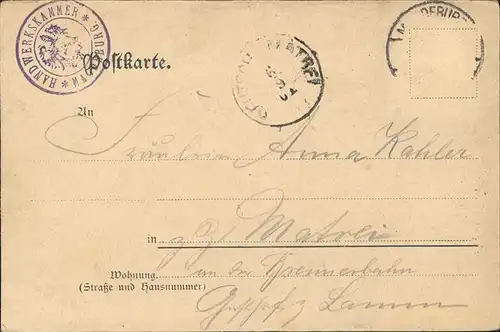 HANDWERKSKAMMER * MAGDEBURG *
Postkarte.
MATREI
An
Fräulein Anna Kahler
in z. Z. Matrei
Wohnung. an der Brennerbahn
(Straße und Hausnummer) Gasthof z. Lamm